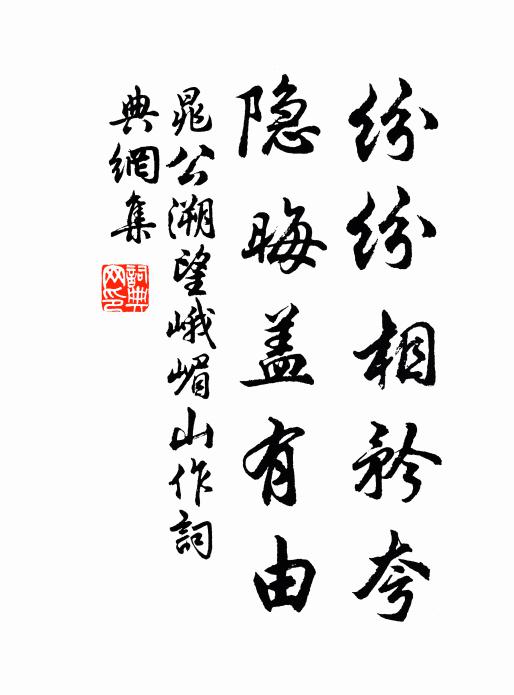 纷纷相矜夸
隐晦盖有由
晁公溯望峨嵋山作詞
典網集
詞典网印